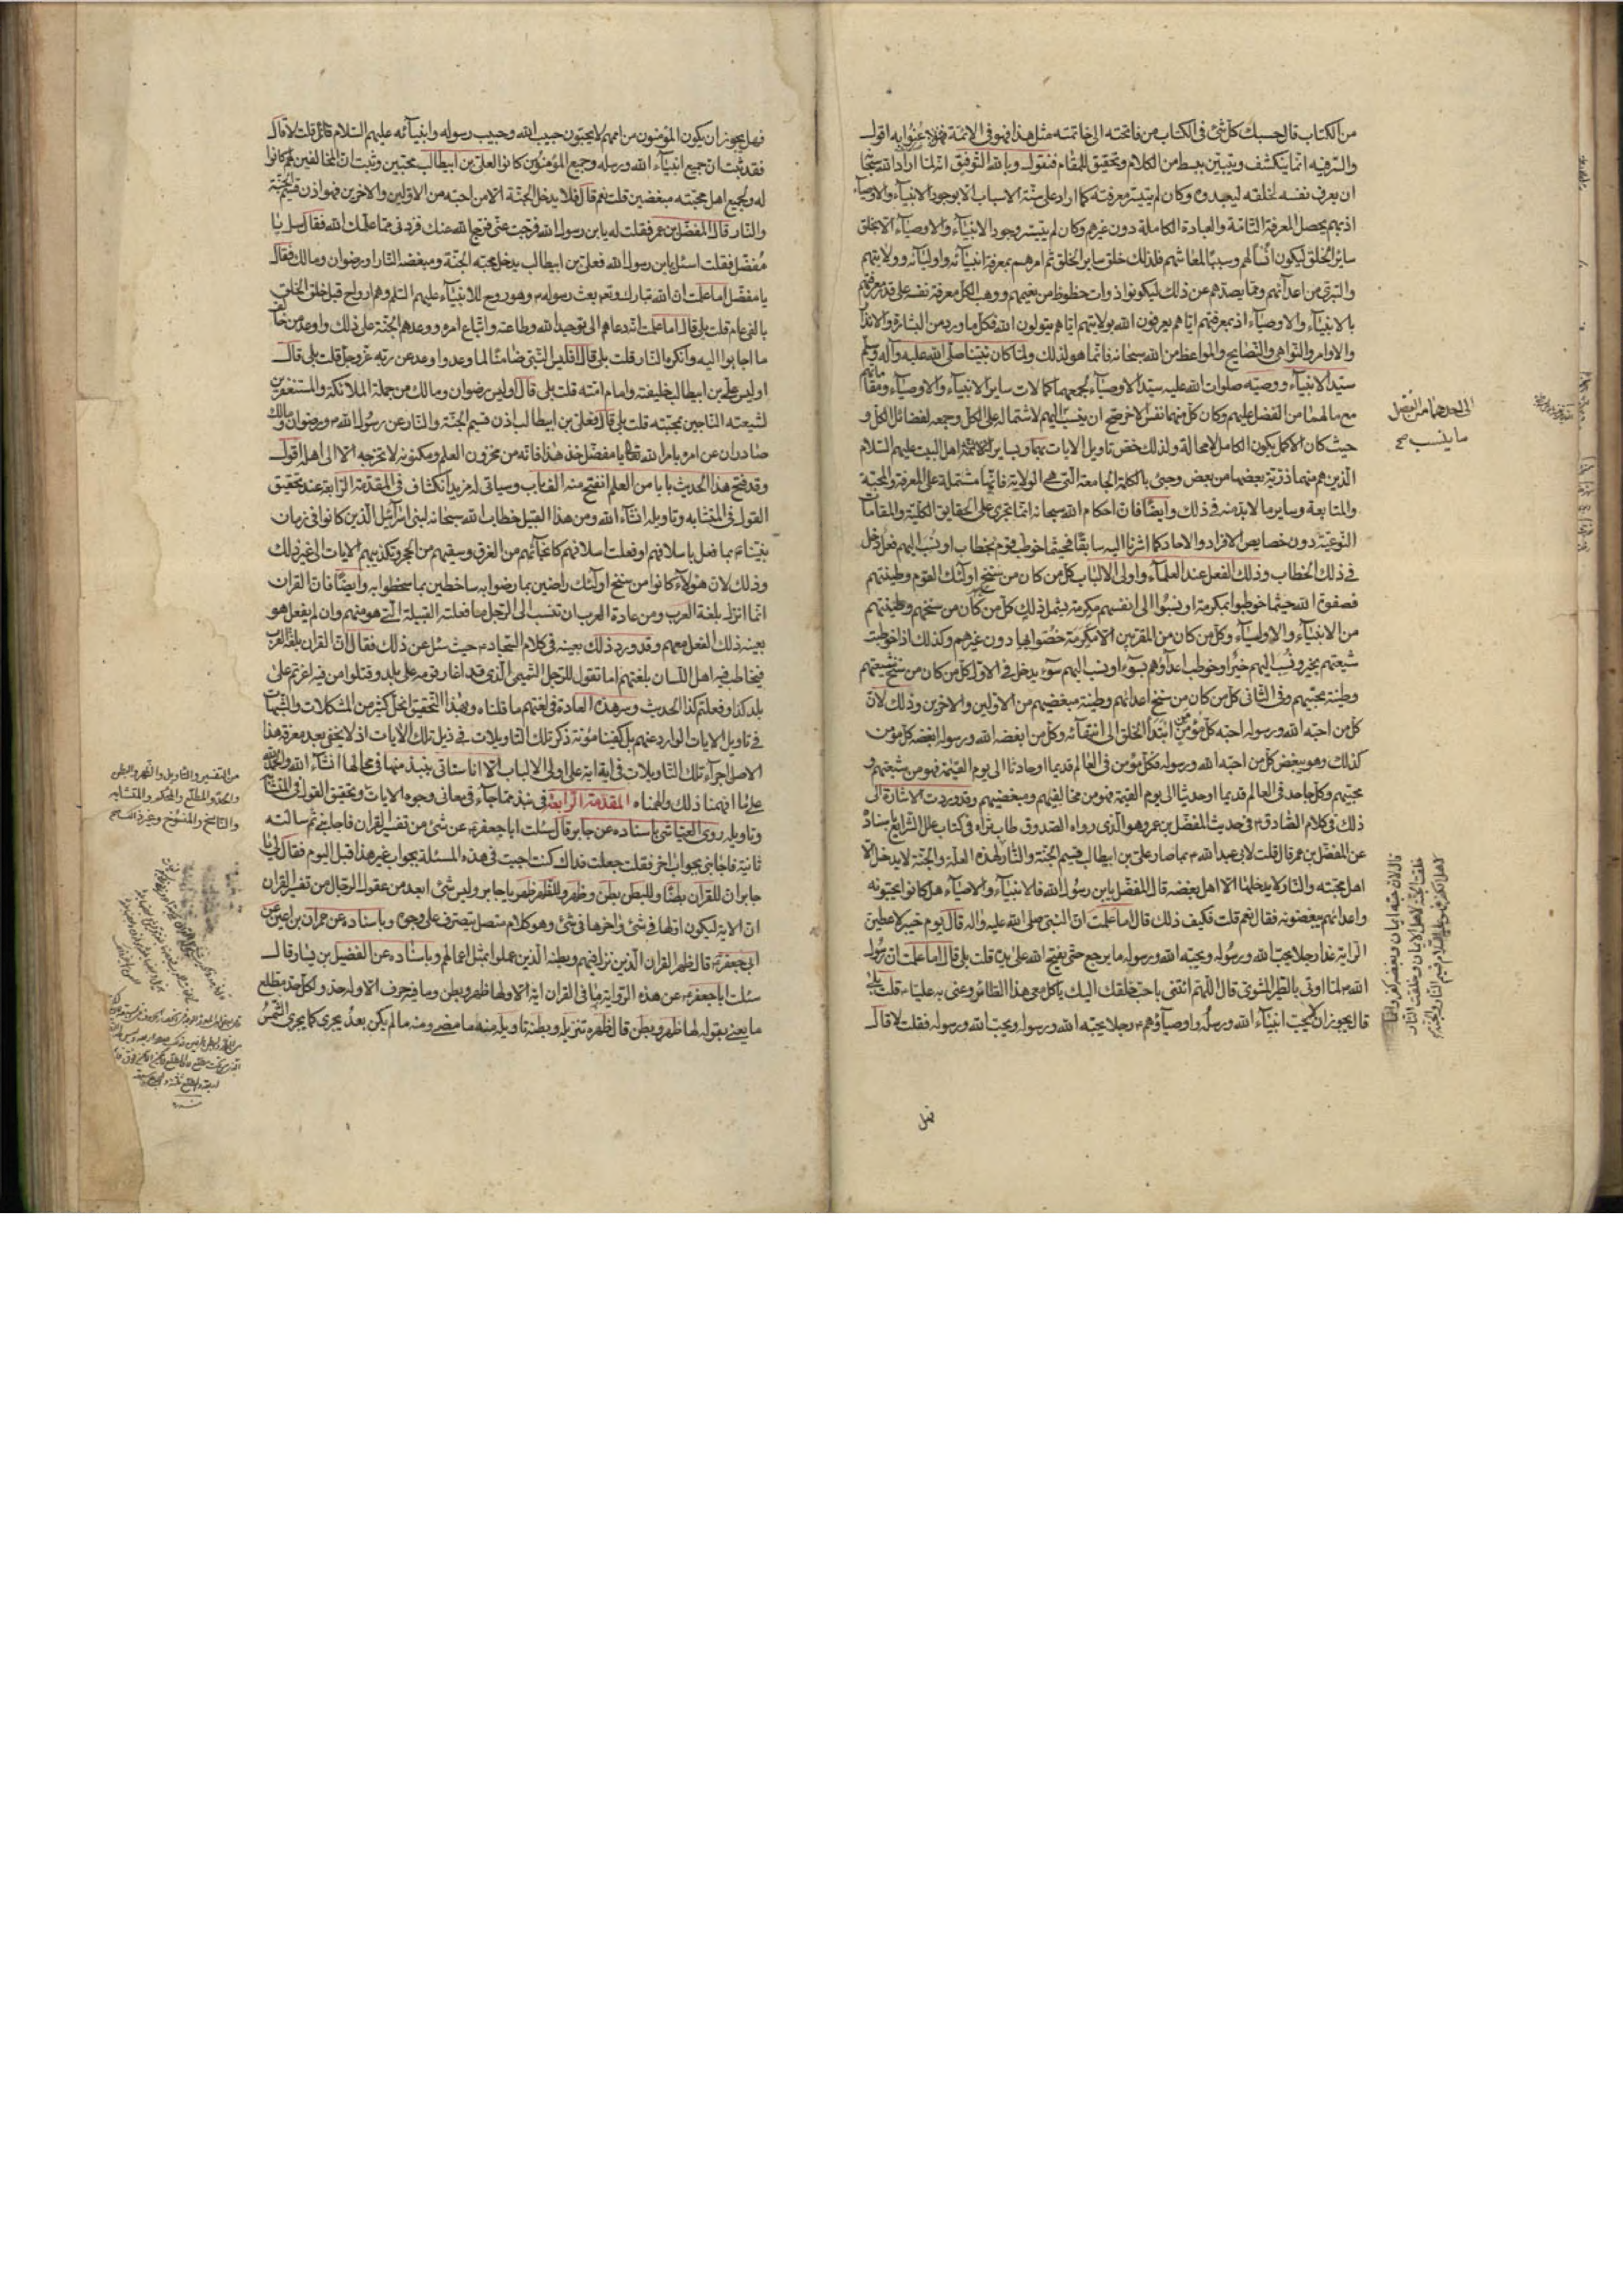 من الكتاب قال حسبك كل شئ فى الكتاب من فاتحته الى خاتمته مثل هذا فهو فى الائمة فهؤلاء عنوا به اقول
والسر فيه انما ينكشف ويتبين ببسط من الكلام وتحقيق للمقام فنقول وبالله التوفيق انه لما اراد الله سبحانه
ان يعرف نفسه لخلقه ليعبدوه وكان لم يتيسر معرفته كما اراد على سنة الاسباب الا بوجود الانبياء والاوصياء
اذ بهم يحصل المعرفة التامة والعبادة الكاملة دون غيرهم وكان لم يتيسر وجود الانبياء والاوصياء الا بخلق
ساير الخلق ليكون انسا لهم وسببا لمعاشهم فلذلك خلق ساير الخلق ثم امرهم بمعرفة انبيائه واوليائه وولايتهم
والتبرى من اعدائهم ومما يصدهم عن ذلك ليكونوا ذوات حظوظ من نعيمهم ووهب الكل معرفة نفسه على قدر معرفتهم
بالانبياء والاوصياء اذ بمعرفتهم اياهم يعرفون الله وبولايتهم اياهم يتولون الله فكل ما ورد من البشارة والانذار
والاوامر والنواهى والنصايح والمواعظ من الله سبحانه فانما هو لذلك ولما كان نبينا صلى الله عليه وآله وسلم
سيد الانبياء ووصيه صلوات الله عليه سيد الاوصياء لجمعهما كمالات ساير الانبياء والاوصياء ومقاماتهم
مع ما لهما من الفضل عليهم وكان كل منهما نفس الاخر صح ان ينسب اليهم لاشتماله على الكل وجمعه لفضائل الكل و
حيث كان الاكمل يكون الكامل لا محالة ولذلك خص تاويل الايات بهما وبساير الائمة اهل البيت عليهم السلام
الذين هم منهما ذرية بعضها من بعض وجئ بالكلمة الجامعة التى هى الولاية فانها مشتملة على المعرفة والمحبة
والمتابعة وساير ما لابد منه فى ذلك وايضا فان احكام الله سبحانه انما تجرى على الحقايق الكلية والمقامات
النوعية دون خصايص الافراد والاحاد كما اشرنا اليه سابقا فحيثما خوطب قوم بخطاب او نسب اليهم فعل دخل
فى ذلك الخطاب وذلك الفعل عند العلماء واولى الالباب كل من كان من سنخ اولئك القوم وطينتهم
فصفوة الله حيثما خوطبوا بمكرمة او نسبوا الى انفسهم مكرمة يشمل ذلك كل من كان من سنخهم وطينتهم
من الانبياء والاولياء وكل من كان من المقربين الا مكرمة خصوا بها دون غيرهم وكذلك اذا خوطبت
شيعتهم بخير او نسب اليهم خير او خوطب اعداؤهم بسوء او نسب اليهم سوء يدخل فى الاول كل من كان من سنخ شيعتهم
وطينة محبيهم وفى الثانى كل من كان من سنخ اعدائهم وطينة مبغضيهم من الاولين والاخرين وذلك لان
كل من احبه الله ورسوله احبه كل مؤمن من ابتداء الخلق الى انتهائه وكل من ابغضه الله ورسوله ابغضه كل مؤمن
كذلك وهو يبغض كل من احبه الله ورسوله فكل مؤمن فى العالم قديما او حادثا الى يوم القيمة فهو من شيعتهم و
محبيهم وكل جاحد فى العالم قديما او حديثا الى يوم القيمة فهو من مخالفيهم ومبغضيهم وقد وردت الاشارة الى
ذلك فى كلام الصادق ع فى حديث المفضل بن عمر وهو الذى رواه الصدوق طاب ثراه فى كتاب علل الشرايع باسناده
عن المفضل بن عمر قال قلت لابى عبد الله ع بما صار على بن ابيطالب قسيم الجنة والنار لهذه العلة والجنة لا يدخلها الا
اهل محبته والنار لا يدخلها الا اهل بغضه قال المفضل يابن رسول الله فالانبياء والاوصياء هل كانوا يحبونه
واعدائهم يبغضونه فقال نعم قلت فكيف ذلك قال اما علمت ان النبى صلى الله عليه واله قال يوم خيبر لاعطين
الراية غدا رجلا يحب الله ورسوله ويحبه الله ورسوله ما يرجع حتى يفتح الله على يديه قلت بلى قال اما علمت ان رسول
الله ص لما اوتى بالطير المشوى قال اللهم ائتنى باحب خلقك اليك ياكل معى هذا الطائر وعنى به عليا ع قلت بلى
قال يجوز ان لا يحب انبياء الله ورسله واوصياؤهم ع رجلا يحبه الله ورسوله ويحب الله ورسوله فقلت لا قال
الى احدهما من الفضل
ما ينسب صح
قال لان حبه ايمان وبغضه كفر وانما
خلقت الجنة لاهل الايمان وخلقت النار
لاهل الكفر فهو عليه السلام قسيم النار والجنة
فهل
فهل يجوز ان يكون المؤمنون من اممهم لا يحبون حبيب الله وحبيب رسوله وانبيائه عليهم السلام قال قلت لا قال
فقد ثبت ان جميع انبياء الله ورسله وجميع المؤمنين كانوا لعلى بن ابيطالب محبين وثبت ان المخالفين لهم كانوا
له ولجميع اهل محبته مبغضين قلت نعم قال فلا يدخل الجنة الا من احبه من الاولين والاخرين فهو اذن قسيم الجنة
والنار قال المفضل بن عمر فقلت له يابن رسول الله فرجت عنى فرج الله عنك فزدنى مما علمك الله فقال سل يا
مفضل فقلت اسئل يابن رسول الله فعلى بن ابيطالب يدخل محبه الجنة ومبغضه النار او رضوان ومالك فقال
يا مفضل اما علمت ان الله تبارك وتعالى بعث رسوله ص وهو روح للانبياء عليهم السلم وهم ارواح قبل خلق الخلق
بالفى عام قلت بلى قال اما علمت انه دعاهم الى توحيد الله وطاعته واتباع امره ووعدهم الجنة على ذلك واوعد من خالف
ما اجابوا اليه وانكره النار قلت بلى قال افليس النبى ضامنا لما وعد واوعد عن ربه عز وجل قلت بلى قال
اوليس على بن ابيطالب خليفته وامام امته قلت بلى قال اوليس رضوان ومالك من جملة الملائكة والمستغفرين
لشيعته الناجين بمحبته قلت بلى قال فعلى بن ابيطالب اذن قسيم الجنة والنار عن رسول الله ص ورضوان ومالك
صادران عن امره بامر الله تعالى يا مفضل خذ هذا فانه من مخزون العلم ومكنونه لا تخرجه الا الى اهله اقول
وقد فتح هذا الحديث بابا من العلم انفتح منه الف باب وسياتى له مزيد انكشاف فى المقدمة الرابعة عند تحقيق
القول فى المتشابه وتاويله انشاء الله ومن هذا القبيل خطاب الله سبحانه لبنى اسرائيل الذين كانوا فى زمان
نبينا ص بما فعل باسلافهم او فعلت اسلافهم كانجائهم من الغرق وسقيهم من الحجر وتكذيبهم الايات الى غير ذلك
وذلك لان هؤلاء كانوا من سنخ اولئك راضين بما رضوا به ساخطين بما سخطوا به وايضا فان القران
انما انزل بلغة العرب ومن عادة العرب ان تنسب الى الرجل ما فعلته القبيلة التى هو منهم وان لم يفعل هو
بعينه ذلك الفعل معهم وقد ورد ذلك بعينه فى كلام السجاد ع حيث سئل عن ذلك فقال ان القران بلغة العرب
فيخاطب فيه اهل اللسان بلغتهم اما تقول للرجل التميمى الذى قد اغار قومه على بلد وقتلوا من فيه اغرتم على
بلد كذا وفعلتم كذا الحديث وسر هذه العادة فى لغتهم ما قلناه وبهذا التحقيق انحل كثير من المشكلات والشبهات
فى تاويل الايات الوارد عنهم بل كفينا مؤنة ذكر تلك التاويلات فى ذيل تلك الايات اذ لا يخفى بعد معرفة هذا
الاصل اجراء تلك التاويلات فى اية اية على اولى الالباب الا انا سناتى بنبذ منها فى محالها انشاء الله والحمد لله
على ما افهمنا ذلك والهمناه المقدمة الرابعة فى نبذ مما جاء فى معانى وجوه الايات وتحقيق القول فى المتشابه
وتاويله روى العياشى باسناده عن جابر قال سئلت ابا جعفر ع عن شئ من تفسير القران فاجابنى ثم سالته
ثانية فاجابنى بجواب اخر فقلت جعلت فداك كنت اجبت فى هذه المسئلة بجواب غير هذا قبل اليوم فقال لى يا
جابر ان للقران بطنا وللبطن بطن وظهر وللظهر ظهر يا جابر وليس شئ ابعد من عقول الرجال من تفسير القران
ان الاية ليكون اولها فى شئ واخرها فى شئ وهو كلام متصل يتصرف على وجوه وباسناده عن حمران بن اعين عن
ابى جعفر ع قال ظهر القران الذين نزل فيهم وبطنه الذين عملوا بمثل اعمالهم وباسناده عن الفضيل بن يسار قال
سئلت ابا جعفر ع عن هذه الرواية ما فى القران اية الا ولها ظهر وبطن وما فيه حرف الا وله حد ولكل حد مطلع
ما يعنى بقوله لها ظهر وبطن قال ظهره تنزيله وبطنه تاويله منه ما مضى ومنه ما لم يكن بعد يجرى كما يجرى الشمس
من التفسير والتاويل والظهر والبطن
والحد والمطلع والمحكم والمتشابه
والناسخ والمنسوخ وغير ذلك صح